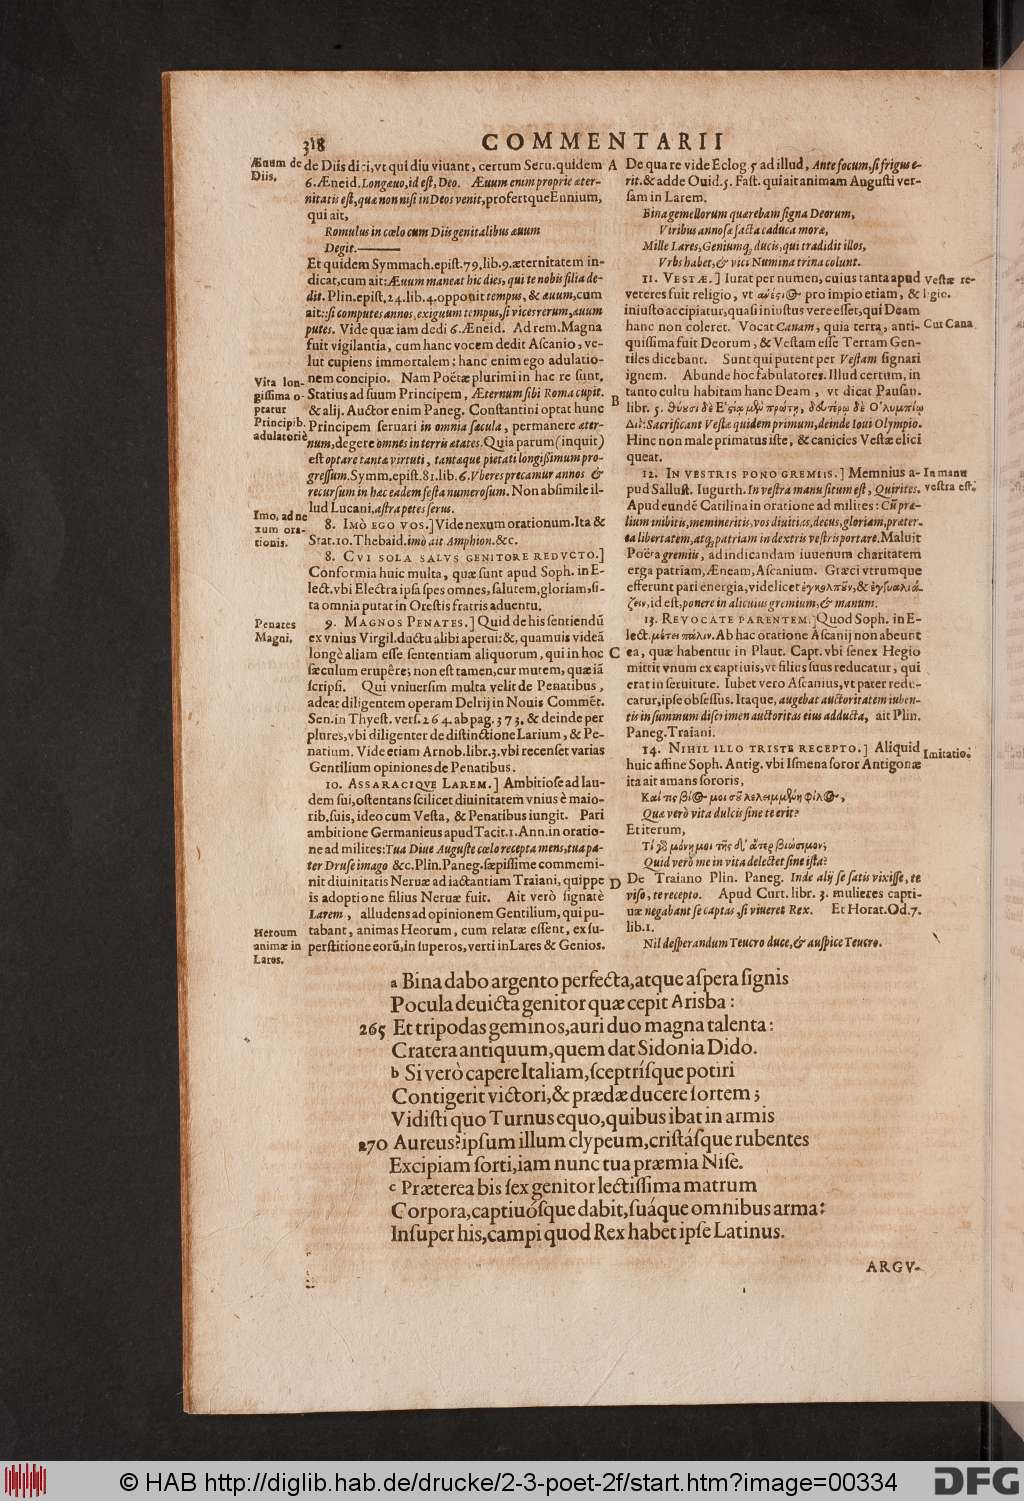 318
COMMENTARII
Æuum de
Diis.
de Diis dici, vt qui diu viuant, certum Seru. quidem
6. Æneid. Longæuo, id est, Deo. Æuum enim proprie æter-
nitatis est, quæ non nisi in Deos venit, profertque Ennium,
qui ait,
Romulus in cœlo cum Diis genitalibus æuum
Degit.———
Et quidem Symmach. epist. 79. lib. 9. æternitatem in-
dicat, cum ait: Æuum maneat hic dies, qui te nobis filia de-
dit. Plin. epist. 24. lib. 4. opponit tempus, & æuum, cum
ait: si computes annos, exiguum tempus, si vices rerum, æuum
putes. Vide quæ iam dedi 6. Æneid. Ad rem. Magna
fuit vigilantia, cum hanc vocem dedit Ascanio, ve-
lut cupiens immortalem: hanc enim ego adulatio-
Vita lon-
gissima o-
ptatur
Principib.
adulatoriè
nem concipio. Nam Poëtæ plurimi in hac re sunt,
Statius ad suum Principem, Æternum sibi Roma cupit.
& alij. Auctor enim Paneg. Constantini optat hunc
Principem seruari in omnia sæcula, permanere æter-
num, degere omnes in terris ætates. Quia parum (inquit)
est optare tantæ virtuti, tantæque pietati longissimum pro-
gressum. Symm. epist. 81. lib. 6. Vberes precamur annos &
recursum in hac eadem festa numerosum. Non absimile il-
lud Lucani, astra petes serus.
Imo, ad ne
xum ora-
tionis.
8. IMÒ EGO VOS.] Vide nexum orationum. Ita &
Stat. 10. Thebaid. imò ait Amphion. &c.
8. CVI SOLA SALVS GENITORE REDVCTO.]
Conformia huic multa, quæ sunt apud Soph. in E-
lect. vbi Electra ipsa spes omnes, salutem, gloriam, si-
ta omnia putat in Orestis fratris aduentu.
Penates
Magni,
9. MAGNOS PENATES.] Quid de his sentiendũ
ex vnius Virgil. ductu alibi aperui: &, quamuis videã
longè aliam esse sententiam aliquorum, qui in hoc
sæculum erupêre; non est tamen, cur mutem, quæ iã
scripsi. Qui vniuersim multa velit de Penatibus,
adeat diligentem operam Delrij in Nouis Commẽt.
Sen. in Thyest. vers. 264. ab pag. 373. & deinde per
plures, vbi diligenter de distinctione Larium, & Pe-
natium. Vide etiam Arnob. libr. 3. vbi recenset varias
Gentilium opiniones de Penatibus.
10. ASSARACIQVE LAREM.] Ambitiose ad lau-
dem sui, ostentans scilicet diuinitatem vnius è maio-
rib. suis, ideo cum Vesta, & Penatibus iungit. Pari
ambitione Germanicus apud Tacit. 1. Ann. in oratio-
ne ad milites: Tua Diue Auguste cœlo recepta mens, tua pa-
ter Druse imago &c. Plin. Paneg. sæpissime commemi-
nit diuinitatis Neruæ ad iactantiam Traiani, quippe
is adoptione filius Neruæ fuit. Ait verò signatè
Larem, alludens ad opinionem Gentilium, qui pu-
Heroum
animæ in
Lares.
tabant, animas Heorum, cum relatæ essent, ex su-
perstitione eorũ, in superos, verti in Lares & Genios.
A
B
C
D
De qua re vide Eclog. 5 ad illud, Ante focum, si frigus e-
rit. & adde Ouid. 5. Fast. qui ait animam Augusti ver-
sam in Larem.
Bina gemellorum quærebam signa Deorum,
Viribus annosæ facta caduca moræ,
Mille Lares, Geniumq; ducis, qui tradidit illos,
Vrbs habet, & vici Numina trina colunt.
11. VESTÆ.] Iurat per numen, cuius tanta apud
Vestæ re-
ligio.
veteres fuit religio, vt ἀνέςι@ pro impio etiam, &
iniusto accipiatur, quasi iniustus vere esset, qui Deam
hanc non coleret. Vocat Canam, quia terra, anti-
Cur Cana
quissima fuit Deorum, & Vestam esse Terram Gen-
tiles dicebant. Sunt qui putent per Vestam signari
ignem. Abunde hoc fabulatores. Illud certum, in
tanto cultu habitam hanc Deam, vt dicat Pausan.
libr. 5. θύουσι δὲ Ἑςίᾳ μὲν πρώτῃ, δευτέρῳ δὲ Ὀλυμπίῳ
Διί: Sacrificant Vestæ quidem primum, deinde Ioui Olympio.
Hinc non male primatus iste, & canicies Vestæ elici
queat.
12. IN VESTRIS PONO GREMIIS.] Memnius a-
In manu
vestra est.
pud Sallust. Iugurth. In vestra manu situm est, Quirites.
Apud eundẽ Catilina in oratione ad milites: Cũ præ-
lium inibitis, memineritis, vos diuitias, decus, gloriam, præter-
ea libertatem, atq; patriam in dextris vestris portare. Maluit
Poëta gremiis, ad indicandam iuuenum charitatem
erga patriam, Æneam, Ascanium. Græci vtrumque
efferunt pari energia, videlicet ἐγκολποῦν, & ἐγγυαλιά-
ζειν, id est, ponere in alicuius gremium, & manum.
13. REVOCATE PARENTEM.] Quod Soph. in E-
lect. μέτει πάλιν. Ab hac oratione Ascanij non abeunt
ea, quæ habentur in Plaut. Capt. vbi senex Hegio
mittit vnum ex captiuis, vt filius suus reducatur, qui
erat in seruitute. Iubet vero Ascanius, vt pater redu-
catur, ipse obsessus. Itaque, augebat auctoritatem iuben-
tis in summum discrimen auctoritas eius adducta, ait Plin.
Paneg. Traiani.
14. NIHIL ILLO TRISTE RECEPTO.] Aliquid
Imitatio.
huic affine Soph. Antig. vbi Ismena soror Antigonæ
ita ait amans sororis,
Καὶ τίς βί@ μοι σοῦ λελειμμένῃ φίλ@,
Quæ verò vita dulcis sine te erit?
Et iterum,
Τί γὰρ μόνῃ μοι τῆς δ' ἄτερ βιώσιμον;
Quid verò me in vita delectet sine ista?
De Traiano Plin. Paneg. Inde alij se satis vixisse, te
viso, te recepto. Apud Curt. libr. 3. mulieres capti-
uæ negabant se captas, si viueret Rex. Et Horat. Od. 7.
lib. 1.
Nil desperandum Teucro duce, & auspice Teucro.
a Bina dabo argento perfecta, atque aspera signis
Pocula deuicta genitor quæ cepit Arisba:
265 Et tripodas geminos, auri duo magna talenta:
Cratera antiquum, quem dat Sidonia Dido.
b Si verò capere Italiam, sceptrísque potiri
Contigerit victori, & prædæ ducere sortem;
Vidisti quo Turnus equo, quibus ibat in armis
270 Aureus? ipsum illum clypeum, cristásque rubentes
Excipiam sorti, iam nunc tua præmia Nise.
c Præterea bis sex genitor lectissima matrum
Corpora, captiuósque dabit, suáque omnibus arma:
Insuper his, campi quod Rex habet ipse Latinus.
ARGV-
© HAB http://diglib.hab.de/drucke/2-3-poet-2f/start.htm?image=00334
DFG